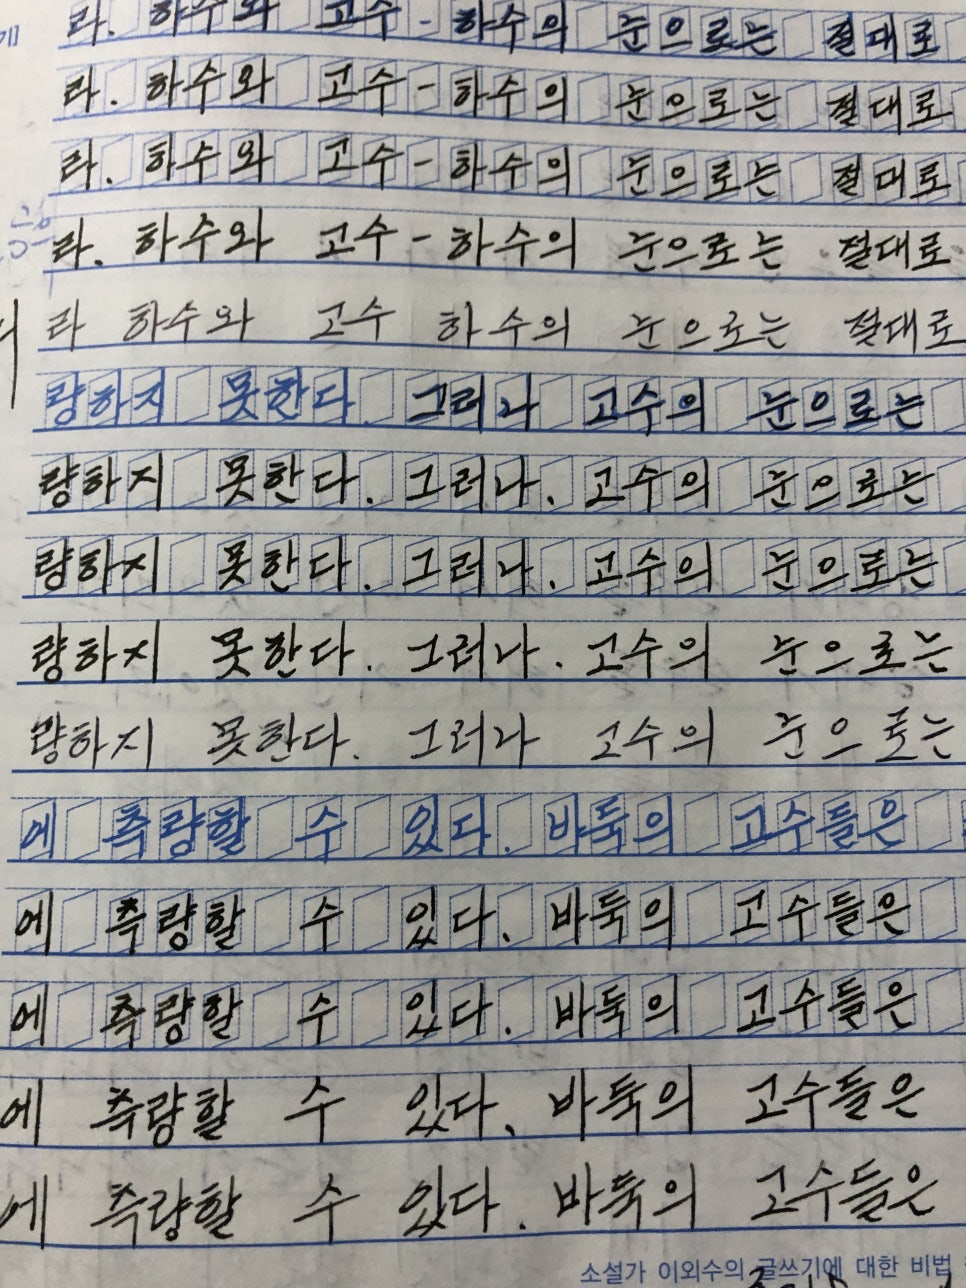 게 라. 하수와 고수 - 하수의 눈으로는 절대로
라. 하수와 고수 - 하수의 눈으로는 절대로
라. 하수와 고수 - 하수의 눈으로는 절대로
라. 하수와 고수 - 하수의 눈으로는 절대로
라 하수와 고수 하수의 눈으로는 절대로
량하지 못한다 그러나 고수의 눈으로는
량하지 못한다. 그러나. 고수의 눈으로는
량하지 못한다. 그러나. 고수의 눈으로는
량하지 못한다. 그러나. 고수의 눈으로는
량하지 못한다. 그러나 고수의 눈으로는
에 측량할 수 있다. 바둑의 고수들은
에 측량할 수 있다. 바둑의 고수들은
에 측량할 수 있다. 바둑의 고수들은
에 측량할 수 있다. 바둑의 고수들은
에 측량할 수 있다. 바둑의 고수들은
소설가 이외수의 글쓰기에 대한 비법